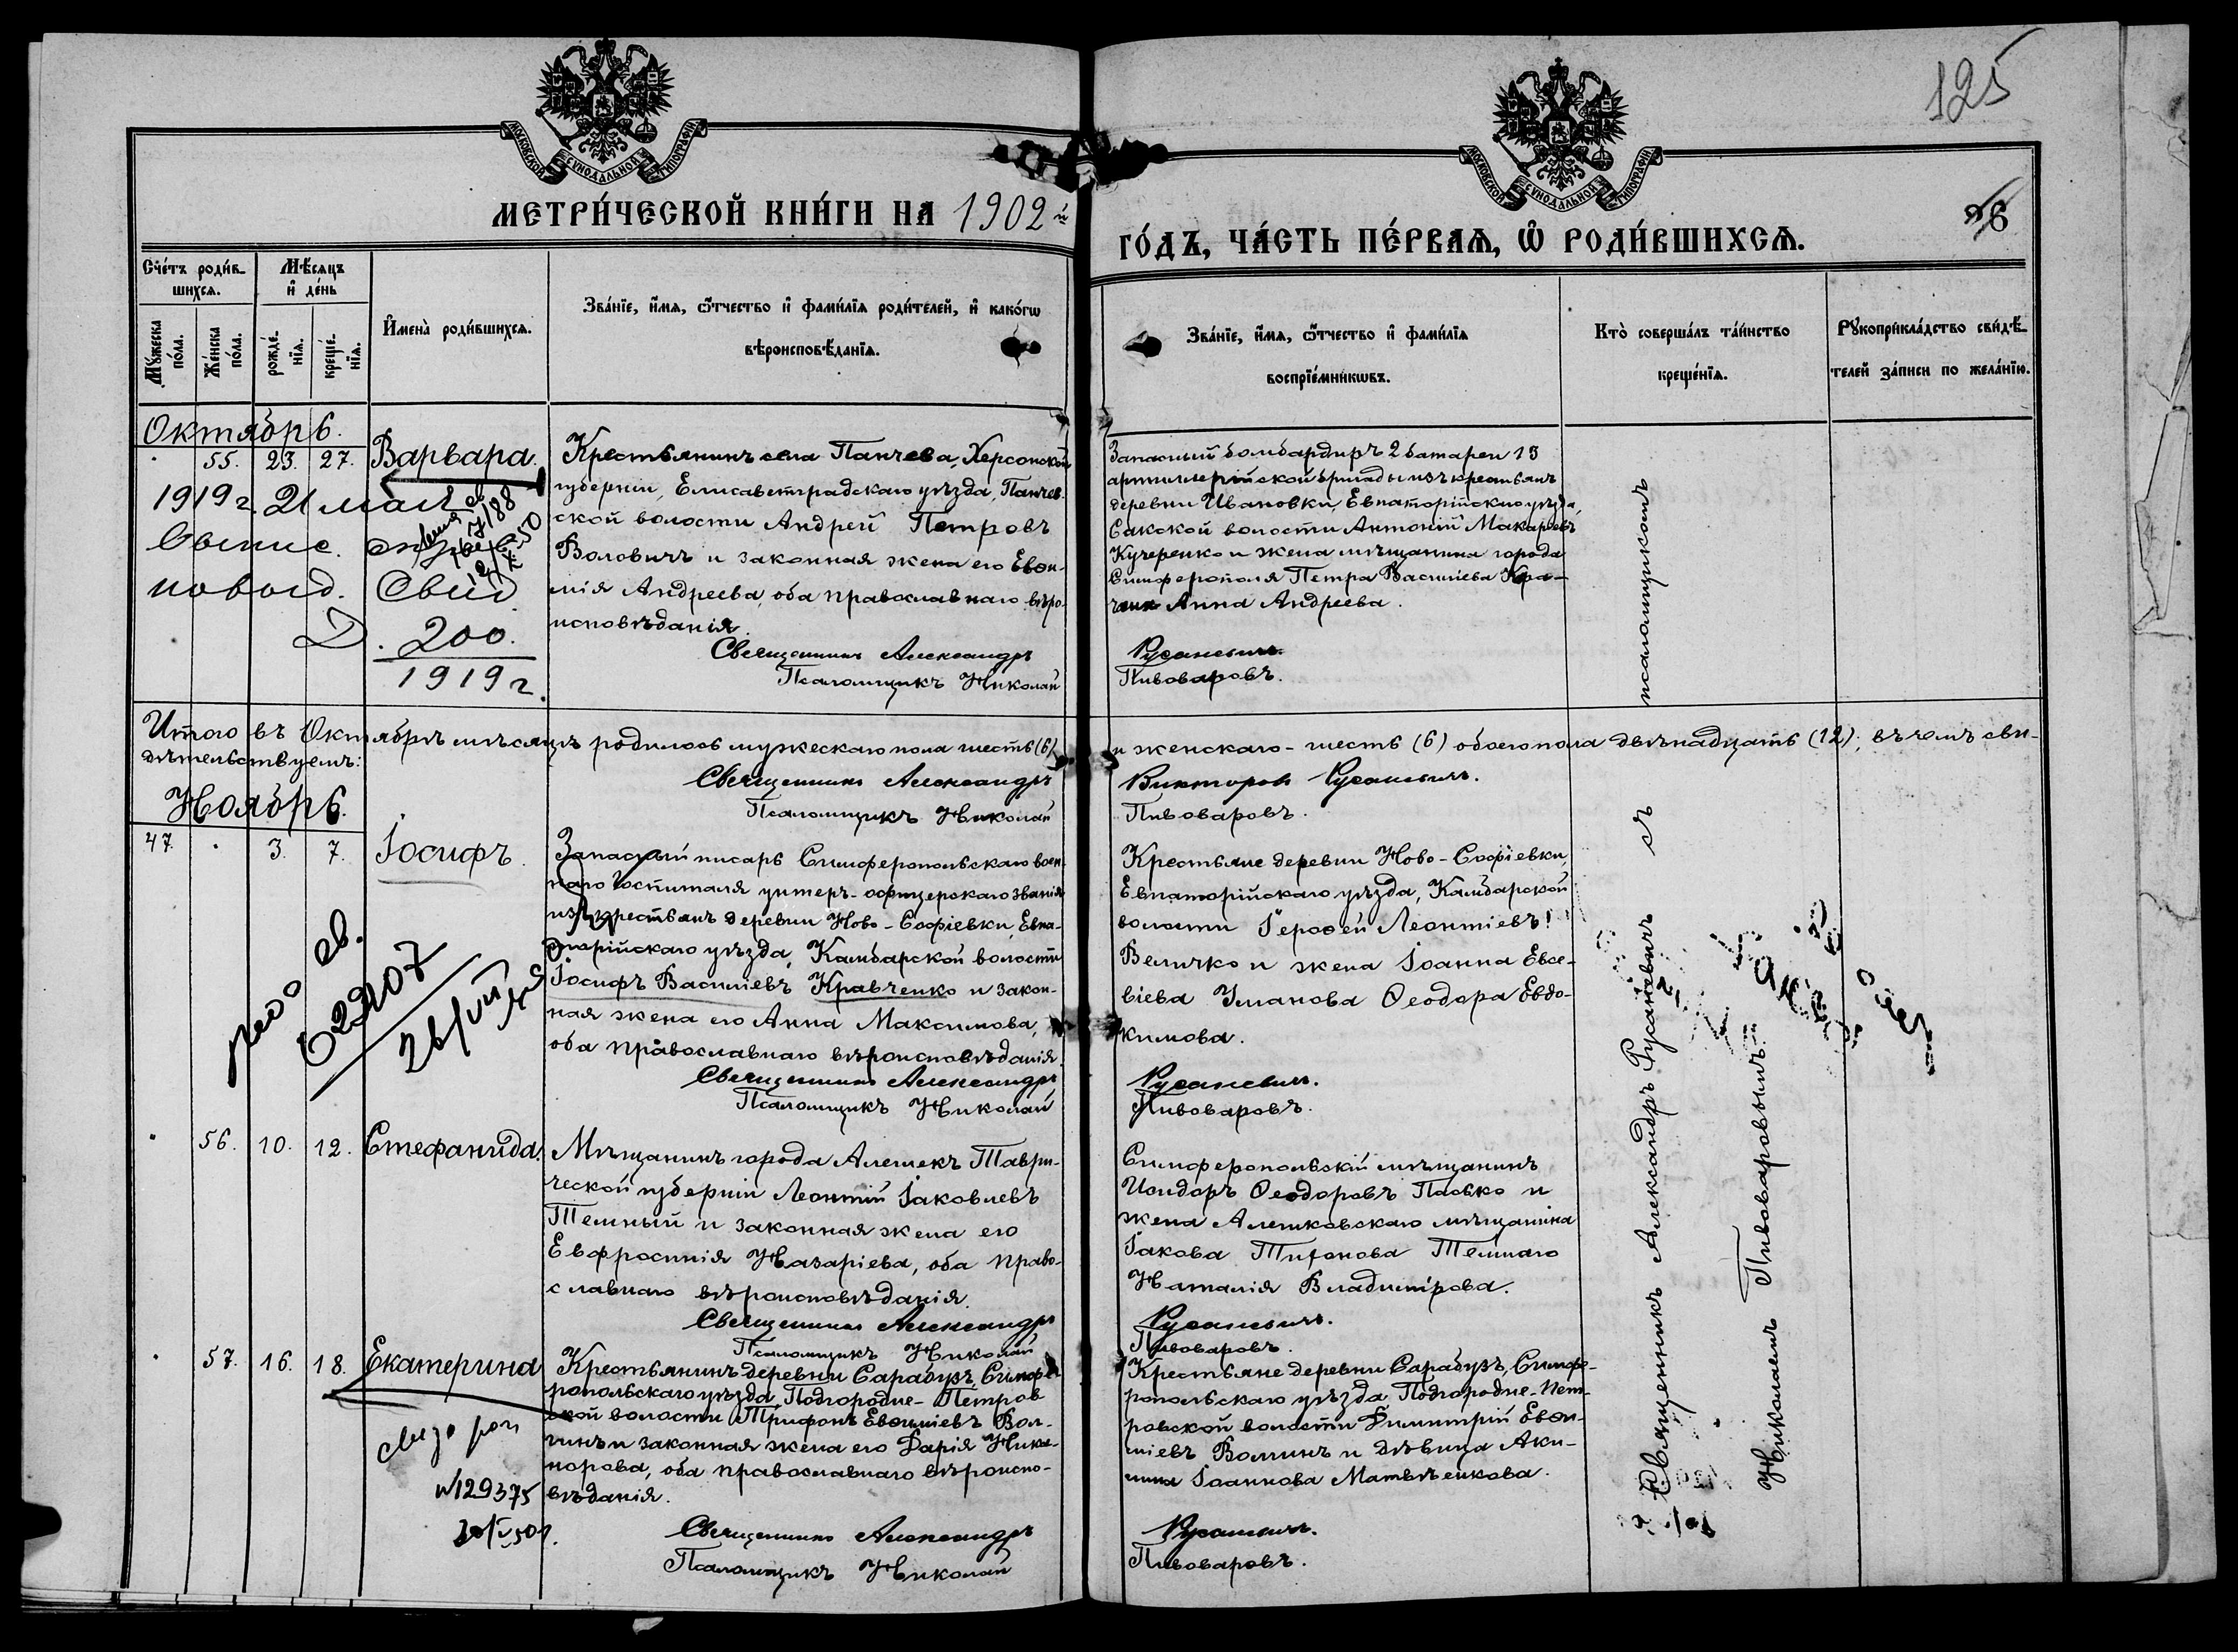 125
МОСКОВСКОЙ СѴНОДАЛЬНОЙ ТИПОГРАФІИ
МОСКОВСКОЙ СѴНОДАЛЬНОЙ ТИПОГРАФІИ
МЕТРИ́ЧЕСКОЙ КНИ́ГИ НА 1902й
ГО́ДЪ, ЧА́СТЬ ПЕ́РВАЯ, Ѡ҆ РОДИ́ВШИХСЯ.
Сче́тъ роди́в-
шихся.
Мѣ́сяцъ
и҆ де́нь
Му́жеска
по́ла.
Же́нска
по́ла.
рожде́-
нїя.
креще́-
нїя.
И҆мена̀ роди́вшихся.
Зва́нїе, и҆́мя, ѻ҆́тчество и҆ фами́лїя роди́телей, и҆ како́гѡ
вѣроисповѣ́данїя.
Зва́нїе, и҆́мя, ѻ҆́тчество и҆ фами́лїя
воспрїе́мникѡвъ.
Кто̀ соверша́лъ та́инство
креще́нїя.
Рꙋкоприкла́дство свидѣ́-
телей за́писи по жела́нїю.
Октябрь.
55. 23. 27. Варвара.
Крестьянинъ села Панчева, Херсонской
губерніи, Елисаветградскаго уѣзда, Панчев-
ской волости Андрей Петровъ
Воловичъ и законная жена его Евѳи-
мія Андреева, оба православнаго вѣро-
исповѣданія.
Священникъ Александръ
Псаломщикъ Николай
1919 г. 21 мая
Свид
200.
1919 г.
Запасный бомбардиръ 2 батареи 13
артиллерійской бригады изъ крестьянъ
деревни Ивановки, Евпаторійскаго уѣзда,
Сакской волости Антоній Макарьевъ
Кучеренко и жена мѣщанина города
Симферополя Петра Васильева
Анна Андреева.
Русаневичъ.
Пивоваровъ.
Итого въ Октябрѣ мѣсяцѣ родилось мужескаго пола шесть (6) и женскаго - шесть (6) обоего пола двѣнадцать (12); въ чемъ сви-
дѣтельствуемъ:
Священникъ Александръ Викторов Русаневичъ.
Псаломщикъ Николай Пивоваровъ.
Ноябрь.
47. 3. 7. Іосифъ.
Запасный писарь Симферопольскаго воен-
наго госпиталя унтеръ-офицерскаго званія
изъ крестьянъ деревни Ново-Софіевки, Евпа-
торійскаго уѣзда, Камбарской волости
Іосифъ Васильевъ Кравченко и закон-
ная жена его Анна Максимова,
оба православнаго вѣроисповѣданія.
Священникъ Александръ
Псаломщикъ Николай
Крестьяне деревни Ново-Софіевки,
Евпаторійскаго уѣзда, Камбарской
волости Героѳей Леонтіевъ
Величко и жена Іоанна Евсе-
віева Уманова Ѳеодора Евдо-
кимова.
Русаневичъ.
Пивоваровъ.
56. 10. 12. Стефанида.
Мѣщанинъ города Алешекъ Таври-
ческой губерніи Леонтій Іаковлевъ
Темный и законная жена его
Евфросинія Назаріева, оба право-
славнаго вѣроисповѣданія.
Священникъ Александръ
Псаломщикъ Николай
Симферопольскій мѣщанинъ
Исидоръ Ѳеодоровъ Пасько и
жена Алешковскаго мѣщанина
Іакова Тихонова Темнаго
Наталія Владимірова.
Русаневичъ.
Пивоваровъ.
57. 16. 18. Екатерина
Крестьянинъ деревни Сарабузъ, Симфе-
ропольскаго уѣзда, Подгородне-Петров-
ской волости Трифонъ Евѳиміевъ Вол-
чинъ и законная жена его Дарія Ника-
норова, оба православнаго вѣроиспо-
вѣданія.
Священникъ Александръ
Псаломщикъ Николай
№129375
Крестьяне деревни Сарабузъ, Симфе-
ропольскаго уѣзда, Подгородне-Пет-
ровской волости Димитрій Евѳи-
міевъ Волчинъ и дѣвица Аки-
лина Іоаннова Матвѣенкова.
Русаневичъ.
Пивоваровъ.
Священникъ Александръ Русаневичъ съ псаломщикомъ
Николаемъ Пивоваровымъ.